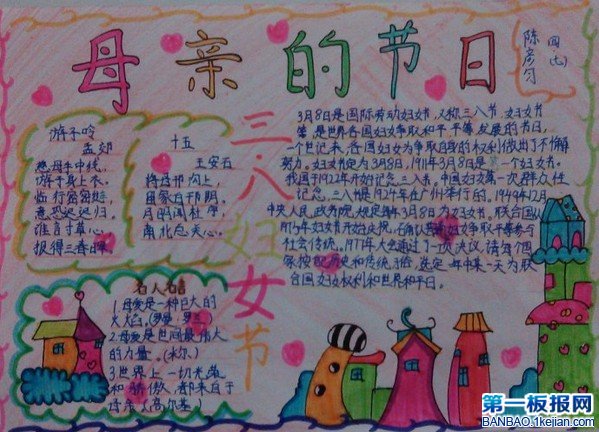 母亲的节日
四(七)
陈彦
游子吟
孟郊
慈母手中线，
游子身上衣。
临行密密缝，
意恐迟迟归。
谁言寸草心，
报得三春晖。
十五
王安石
将母邗沟上，
留家白纻阴。
月明闻杜宇，
南北总关心。
三·八妇女节
3月8日是国际劳动妇女节，又称三八节，妇女节
等，是世界各国妇女争取和平、平等、发展的节日，
一个世纪来，各国妇女为争取自我的权利做出了不懈
努力。妇女节定为3月8日，1911年3月8日是第一个妇女节。
我国于1922年开始纪念三八节，中国妇女第一次群众性
纪念三八节是1924年在广州举行的。1949年12月
中央人民政务院规定每年3月8日为妇女节，联合国从
1975年妇女节开始庆祝，
社会传统，1977年大会通过了一项决议，请每个国
家按照历史和传统习俗，选定一年中某一天为联
合国妇女权利和世界和平日。
名人名言
1.母爱是一种巨大的
火焰。(罗曼·罗兰)
2.母爱是世间最伟大
的力量。(米尔)
3.世界上一切光荣
和骄傲，都来自于
母亲。(高尔基)
第一板报网
BANBAO.1kejian.com